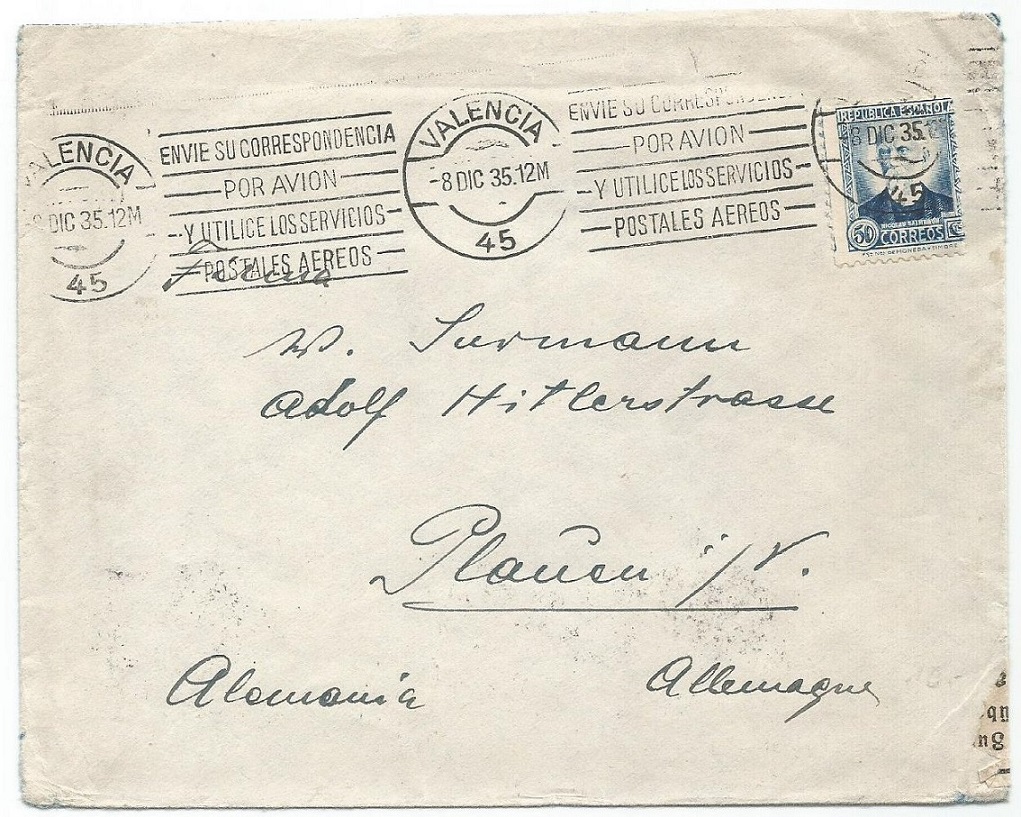 VALENCIA
8 DIC 35.12M
45
ENVIE SU CORRESPONDENCIA
POR AVION
Y UTILICE LOS SERVICIOS
POSTALES AEREOS
VALENCIA
-8 DIC 35.12M
45
ENVIE SU CORRESPONDENCIA
POR AVION
Y UTILICE LOS SERVICIOS
POSTALES AEREOS
8 DIC 35.1
45
REPUBLICA ESPAÑOLA
NICOLAS SALMERON
50 CORREOS Cs
Firma
W. Surmann
Adolf Hitlerstrasse
Plauen i/V.
Alemania
Allemagne